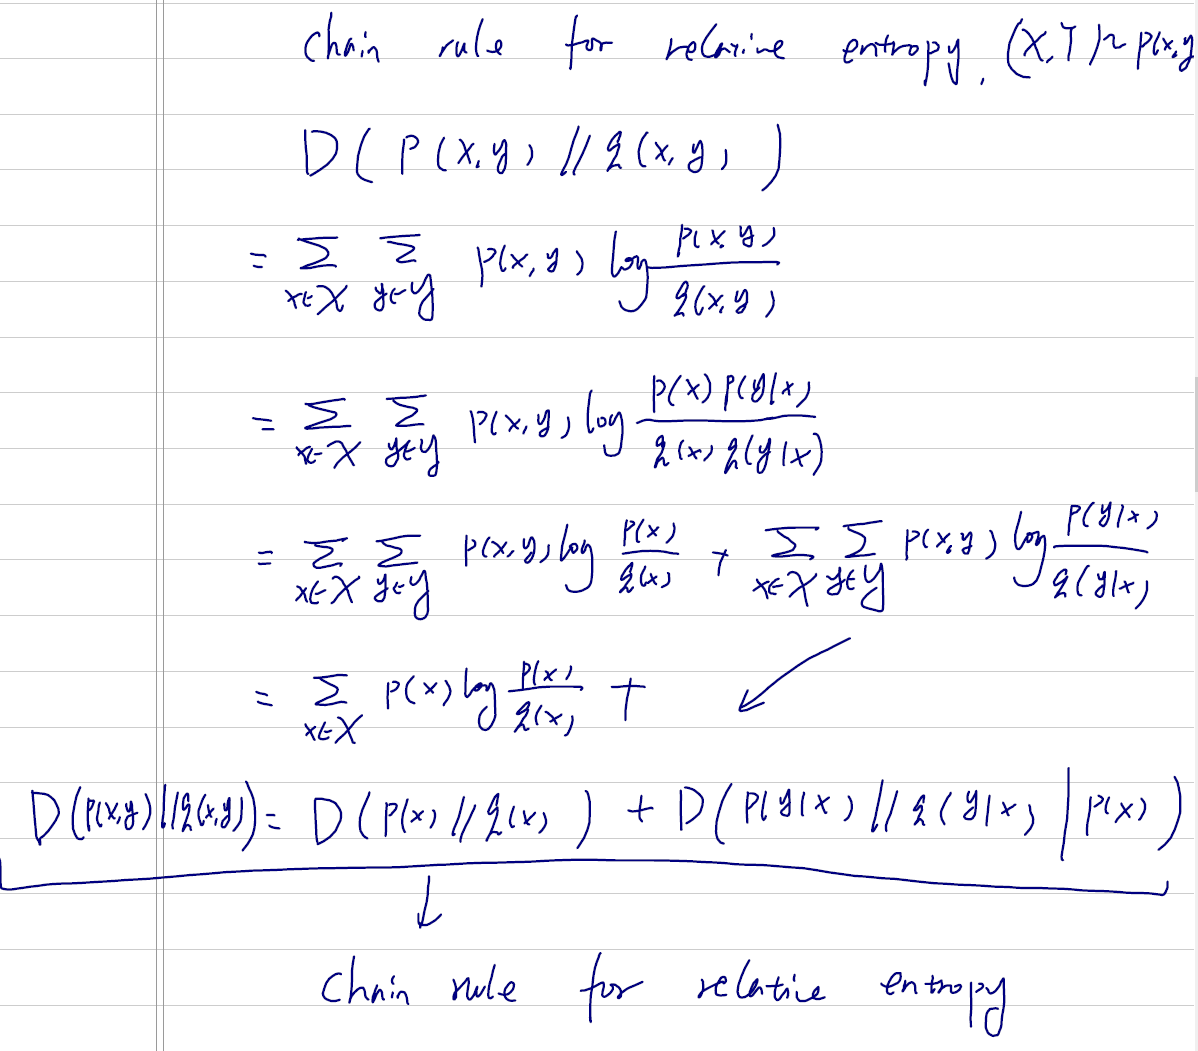 chain rule for relative entropy, (X,Y)~p(x,y
D( p(x,y) // q(x,y) )
= Σ_{x∈X} Σ_{y∈Y} p(x,y) log p(x,y)/q(x,y)
= Σ_{x∈X} Σ_{y∈Y} p(x,y) log p(x)p(y|x)/q(x)q(y|x)
= Σ_{x∈X} Σ_{y∈Y} p(x,y) log p(x)/q(x) + Σ_{x∈X} Σ_{y∈Y} p(x,y) log p(y|x)/q(y|x)
= Σ_{x∈X} p(x) log p(x)/q(x) + ↙
D(p(x,y)||q(x,y)) = D( p(x) // q(x) ) + D( p(y|x) // q(y|x) | p(x) )
↓
chain rule for relative entropy